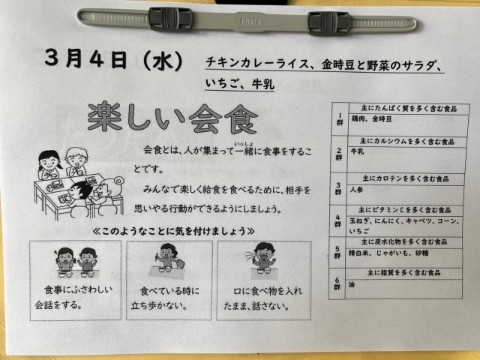 3月4日（水）
チキンカレーライス、金時豆と野菜のサラダ、
いちご、牛乳
楽しい会食
会食とは、人が集まって一緒に食事をするこ
いっしょ
とです。
みんなで楽しく給食を食べるために、相手を
思いやる行動ができるようにしましょう。
≪このようなことに気を付けましょう≫
食事にふさわしい
会話をする。
食べている時に
立ち歩かない。
口に食べ物を入れ
たまま、話さない。
1群
主にたんぱく質を多く含む食品
鶏肉、金時豆
2群
主にカルシウムを多く含む食品
牛乳
3群
主にカロテンを多く含む食品
人参
4群
主にビタミンCを多く含む食品
玉ねぎ、にんにく、キャベツ、コーン、
いちご
5群
主に炭水化物を多く含む食品
精白米、じゃがいも、砂糖
6群
主に脂質を多く含む食品
油